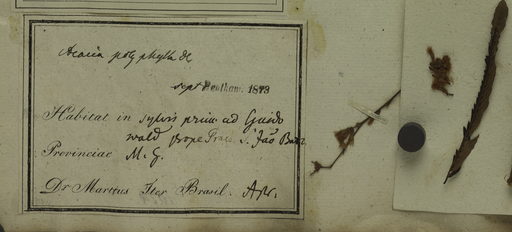 Acacia polyphylla DC
sept Bentham. 1873
Habitat in sylvis prim. ad Guido
wald prope Praes. S. Joâo Bat.
Provinciae M. G.
Dr Martius Iter Brasil. Apr.